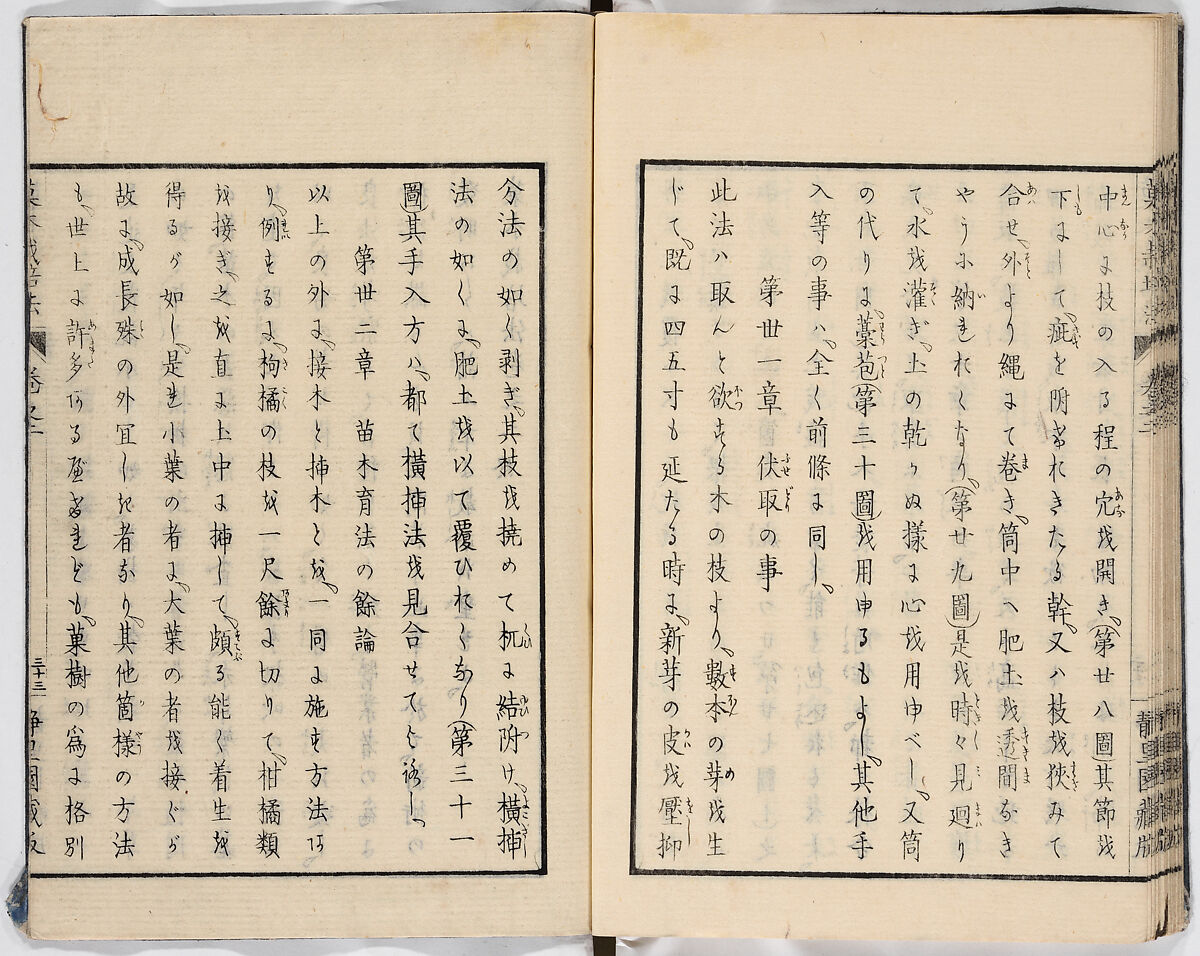 中心に枝の入る程の穴を開き、(第廿八圖)其節を
下にして、疵を附けおきたる幹、又ハ枝を狹みて
合せ、外より縄にて巻き、筒中へ肥土を透間なき
やうに納れおくなり、(第廿九圖)是を時々見廻り
て、水を灌ぎ、土の乾かぬ樣に心を用ゆべし、又筒
の代りに、藁苞(第三十圖)を用ゆるもよし、其他手
入等の事ハ、全く前條に同し、
第丗一章 伏取の事
此法ハ取んと欲する木の枝より、數本の芽を生
じて、既に四五寸も延たる時に、新芽の皮を壓抑
分法の如く剥ぎ、其枝を撓めて杭に結附け、橫揷
法の如くに、肥土を以て覆ひおくなり、(第三十一
圖)其手入方ハ、都て橫揷法を見合せてと
第丗二章 苗木育法の餘論
以上の外に、接木と揷木とを、一同に施す方法あ
り、例するに、枸橘の枝を一尺餘に切りて、柑橘類
を接ぎ、之を直に土中に揷して、頗る能く着生を
得るが如し、是れ小葉の者に、大葉の者を接ぐが
故に、成長殊の外宜しき者なり、其他箇樣の方法
も、世上に許多あるべけれども、菓樹の爲に格別
卷之二
三十三
靜里園藏版